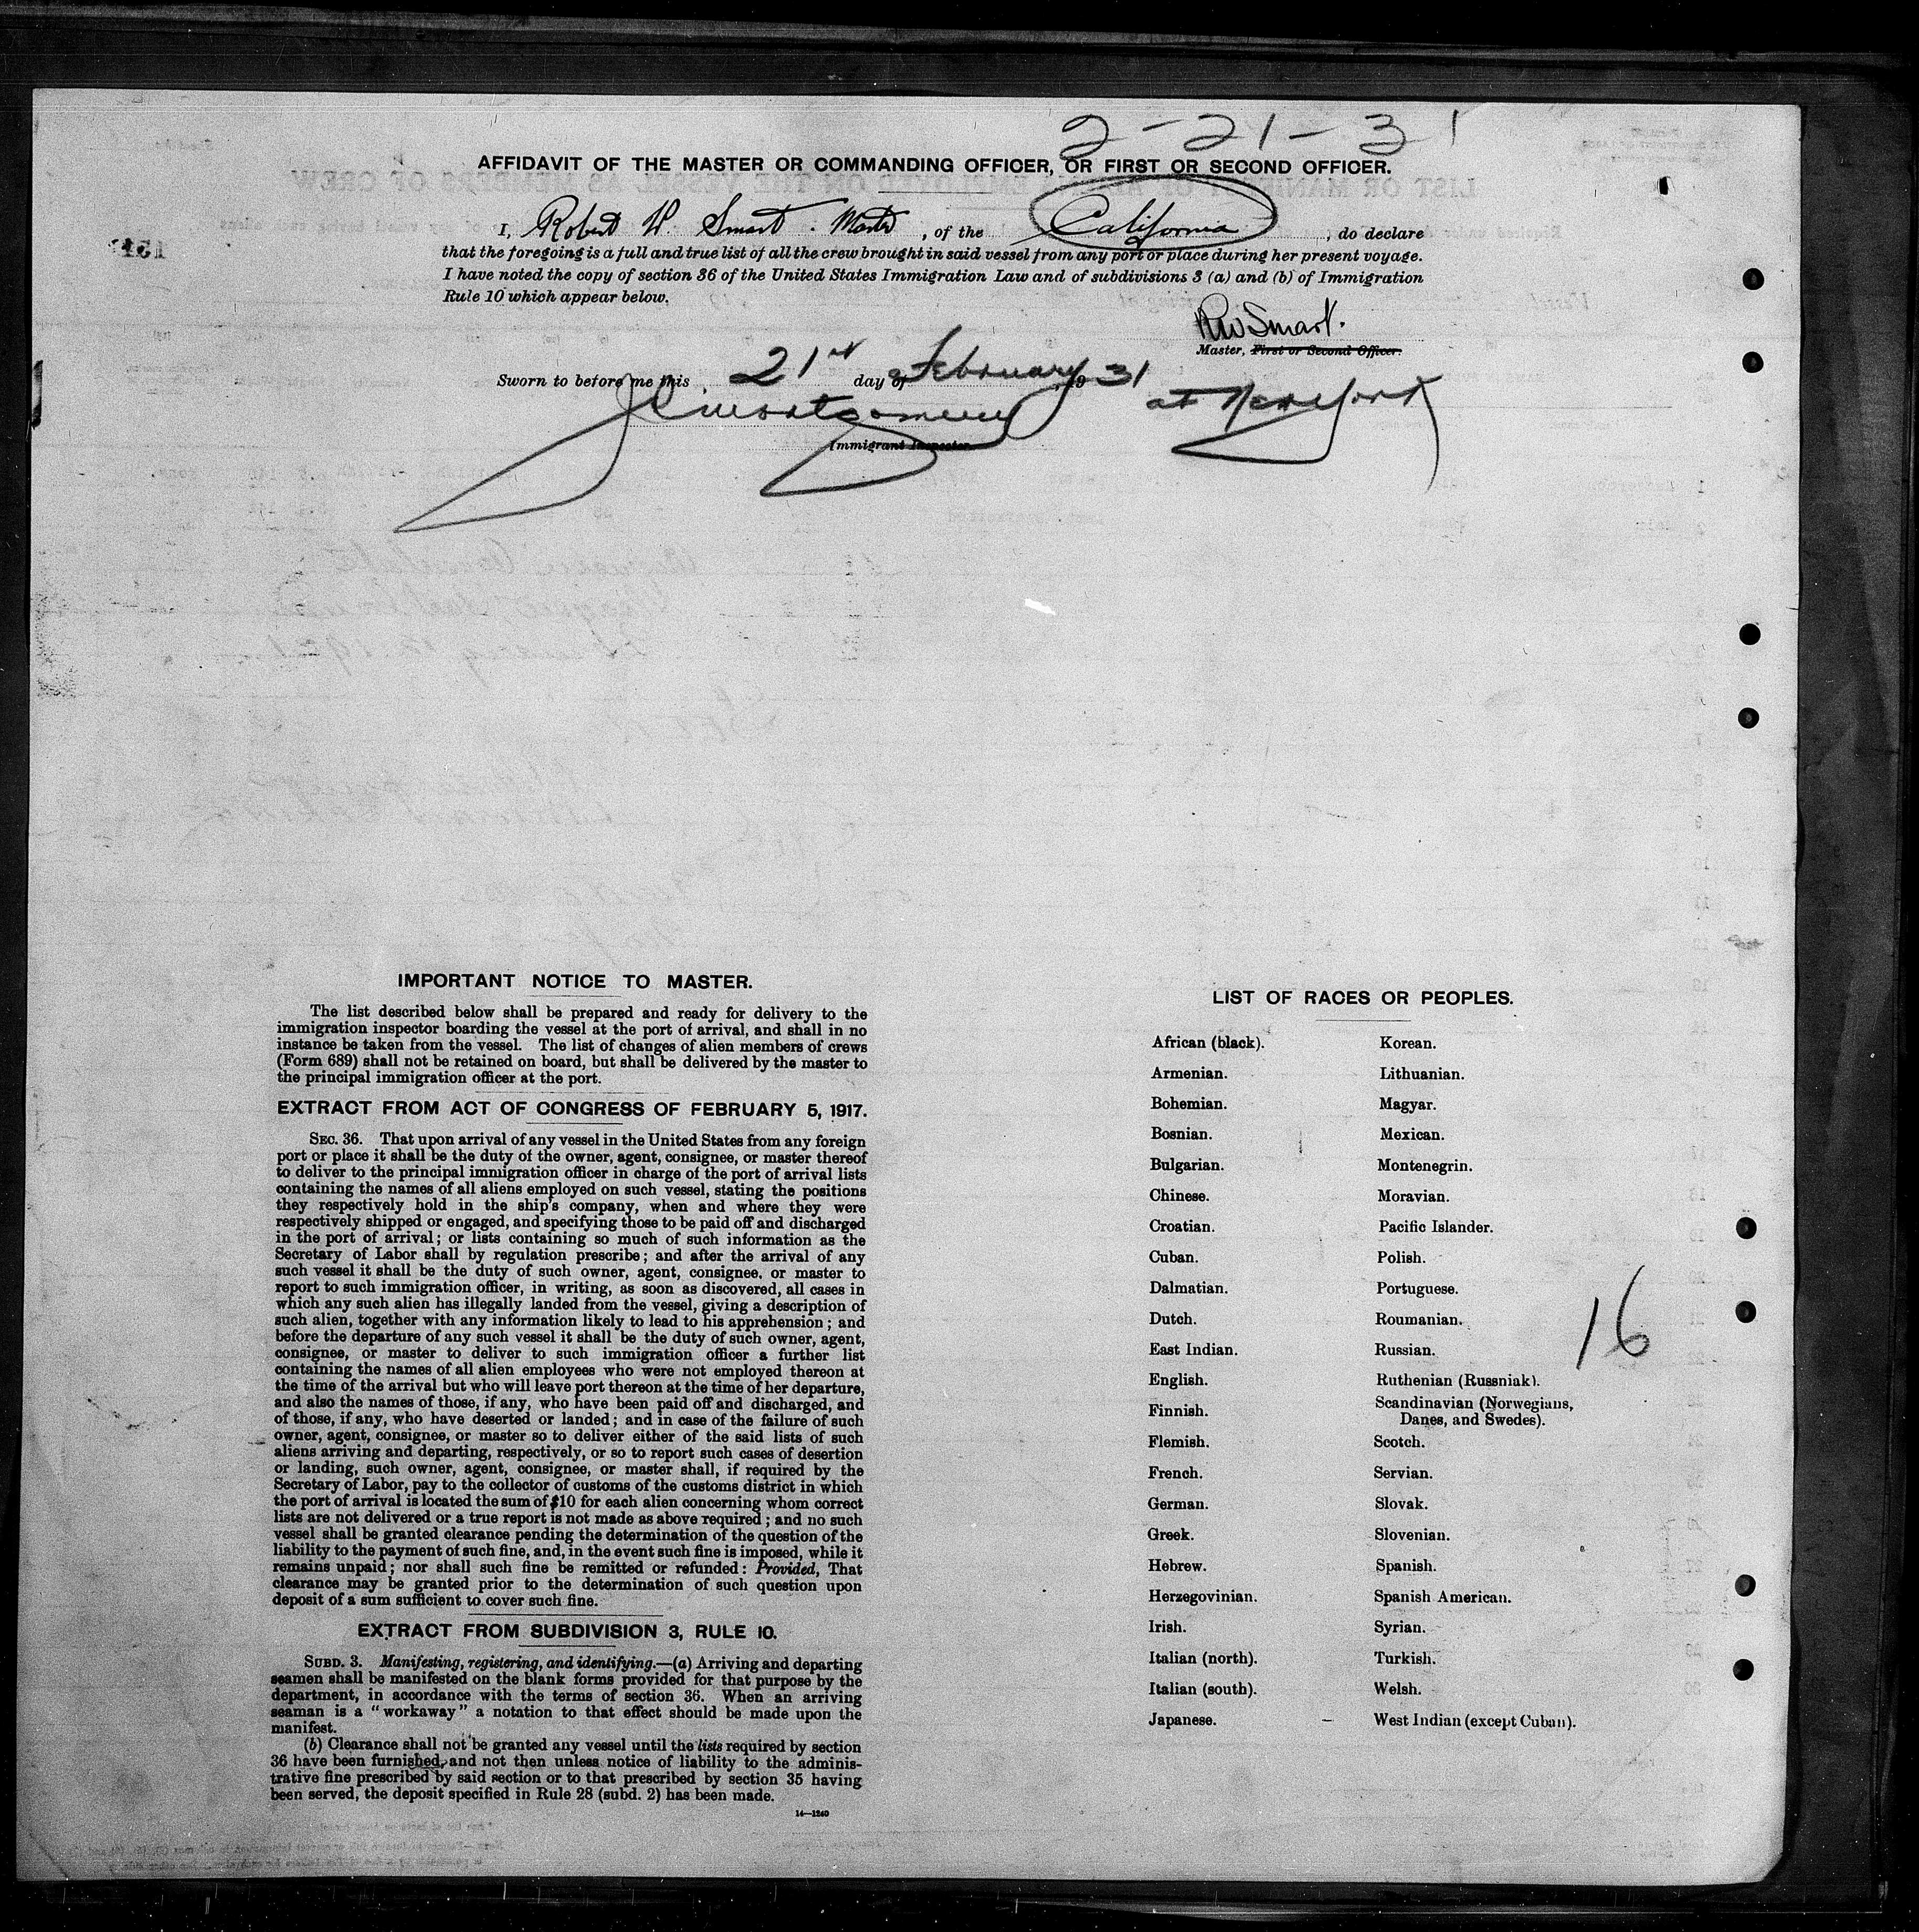 2-21-31
AFFIDAVIT OF THE MASTER OR COMMANDING OFFICER, OR FIRST OR SECOND OFFICER.
I, Robert W. Smart. Master, of the California, do declare
that the foregoing is a full and true list of all the crew brought in said vessel from any port or place during her present voyage.
I have noted the copy of section 36 of the United States Immigration Law and of subdivisions 3 (a) and (b) of Immigration
Rule 10 which appear below.
RW Smart.
Master, First or Second Officer.
Sworn to before me this 21st day of February, 1931
at New York
Immigrant Inspector.
IMPORTANT NOTICE TO MASTER.
The list described below shall be prepared and ready for delivery to the
immigration inspector boarding the vessel at the port of arrival, and shall in no
instance be taken from the vessel. The list of changes of alien members of crews
(Form 689) shall not be retained on board, but shall be delivered by the master to
the principal immigration officer at the port.
EXTRACT FROM ACT OF CONGRESS OF FEBRUARY 5, 1917.
SEC. 36. That upon arrival of any vessel in the United States from any foreign
port or place it shall be the duty of the owner, agent, consignee, or master thereof
to deliver to the principal immigration officer in charge of the port of arrival lists
containing the names of all aliens employed on such vessel, stating the positions
they respectively hold in the ship's company, when and where they were
respectively shipped or engaged, and specifying those to be paid off and discharged
in the port of arrival; or lists containing so much of such information as the
Secretary of Labor shall by regulation prescribe; and after the arrival of any
such vessel it shall be the duty of such owner, agent, consignee, or master to
report to such immigration officer, in writing, as soon as discovered, all cases in
which any such alien has illegally landed from the vessel, giving a description of
such alien, together with any information likely to lead to his apprehension; and
before the departure of any such vessel it shall be the duty of such owner, agent,
consignee, or master to deliver to such immigration officer a further list
containing the names of all alien employees who were not employed thereon at
the time of the arrival but who will leave port thereon at the time of her departure,
and also the names of those, if any, who have been paid off and discharged, and
of those, if any, who have deserted or landed; and in case of the failure of such
owner, agent, consignee, or master so to deliver either of the said lists of such
aliens arriving and departing, respectively, or so to report such cases of desertion
or landing, such owner, agent, consignee, or master shall, if required by the
Secretary of Labor, pay to the collector of customs of the customs district in which
the port of arrival is located the sum of $10 for each alien concerning whom correct
lists are not delivered or a true report is not made as above required; and no such
vessel shall be granted clearance pending the determination of the question of the
liability to the payment of such fine, and, in the event such fine is imposed, while it
remains unpaid; nor shall such fine be remitted or refunded: Provided, That
clearance may be granted prior to the determination of such question upon
deposit of a sum sufficient to cover such fine.
EXTRACT FROM SUBDIVISION 3, RULE 10.
SUBD. 3. Manifesting, registering, and identifying.—(a) Arriving and departing
seamen shall be manifested on the blank forms provided for that purpose by the
department, in accordance with the terms of section 36. When an arriving
seaman is a "workaway" a notation to that effect should be made upon the
manifest.
(b) Clearance shall not be granted any vessel until the lists required by section
36 have been furnished, and not then unless notice of liability to the adminis-
trative fine prescribed by said section or to that prescribed by section 35 having
been served, the deposit specified in Rule 28 (subd. 2) has been made.
14—1240
LIST OF RACES OR PEOPLES.
African (black).
Armenian.
Bohemian.
Bosnian.
Bulgarian.
Chinese.
Croatian.
Cuban.
Dalmatian.
Dutch.
East Indian.
English.
Finnish.
Flemish.
French.
German.
Greek.
Hebrew.
Herzegovinian.
Irish.
Italian (north).
Italian (south).
Japanese.
Korean.
Lithuanian.
Magyar.
Mexican.
Montenegrin.
Moravian.
Pacific Islander.
Polish.
Portuguese.
Roumanian.
Russian.
Ruthenian (Russniak).
Scandinavian (Norwegians,
Danes, and Swedes).
Scotch.
Servian.
Slovak.
Slovenian.
Spanish.
Spanish American.
Syrian.
Turkish.
Welsh.
West Indian (except Cuban).
16